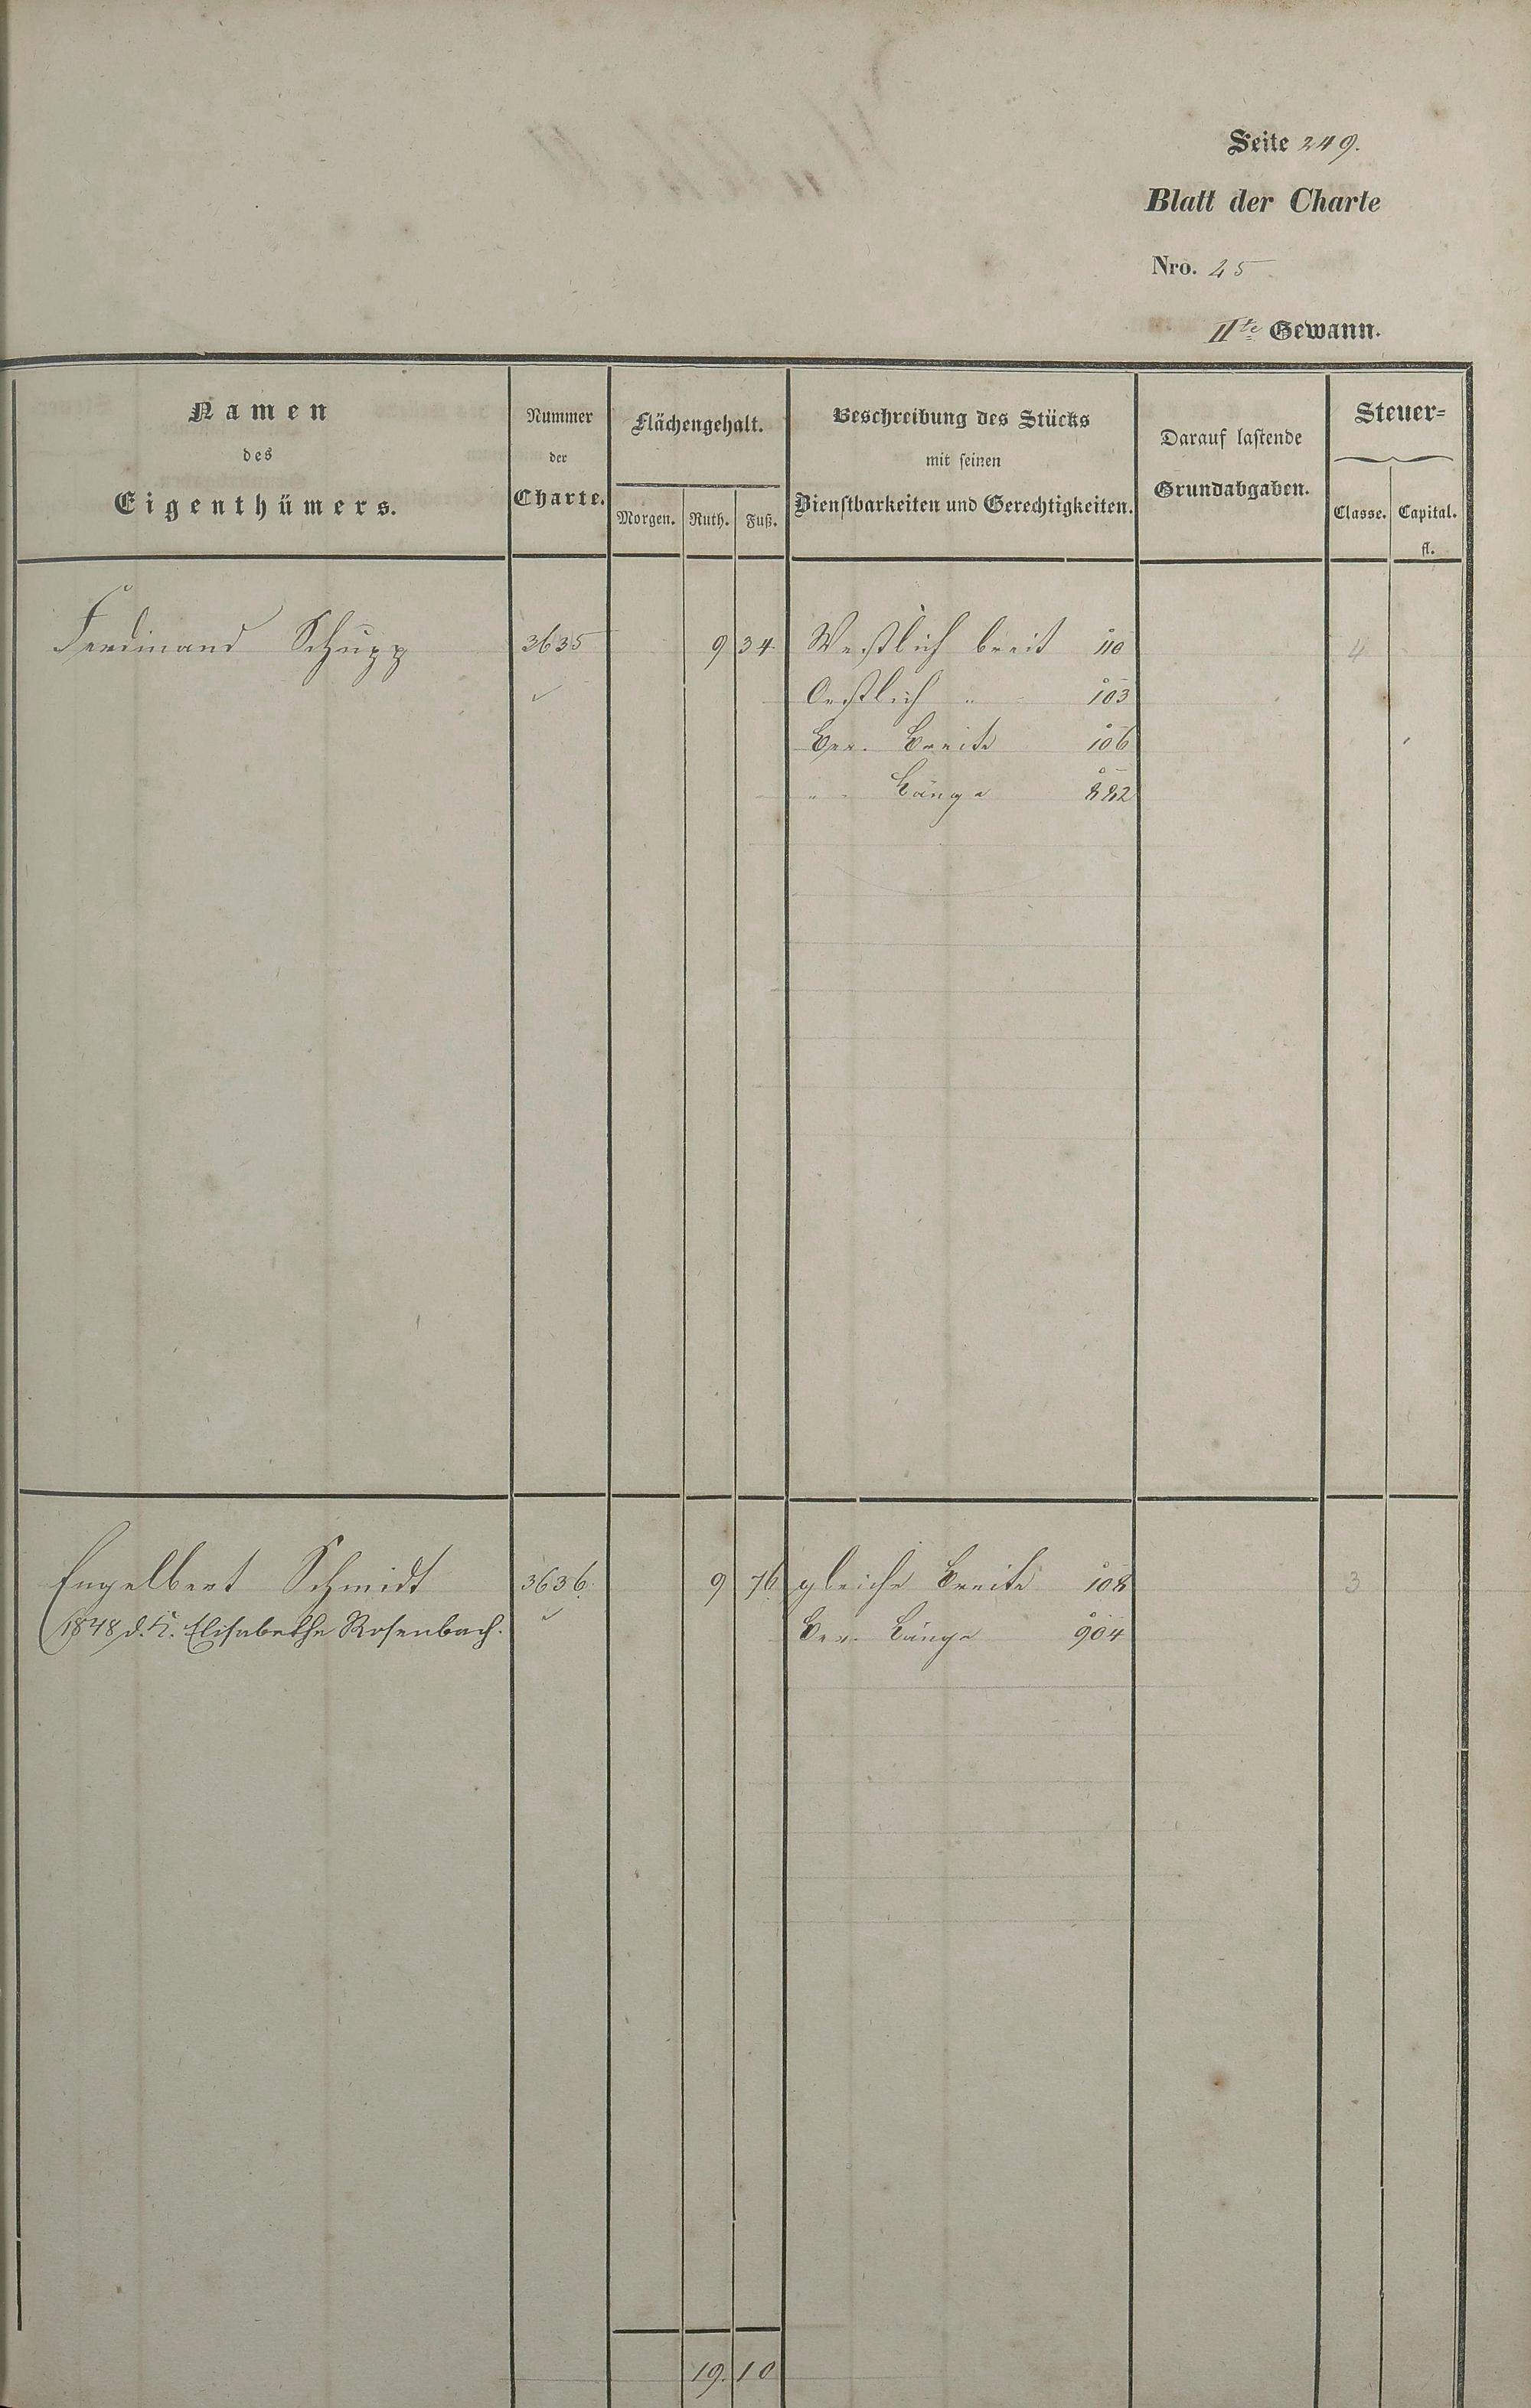 Seite 249.
Blatt der Charte
Nro. 25
IIte Gewann.
Namen
des
Eigenthümers.
Nummer
der
Charte.
Flächengehalt.
Morgen. Ruth. Fuß.
Beschreibung des Stücks
mit seinen
Dienstbarkeiten und Gerechtigkeiten.
Darauf lastende
Grundabgaben.
Steuer=
Classe. Capital.
fl.
Ferdinand Schupp 3635 9 34 Westlich breit 110 4
Oestlich " 103
Ber. Breite 106
" " Länge 882
Engelbert Schmidt 3636. 9 76 gleiche Breite 108 3
(1848 d. K. Elisabethe Rosenbach. Ber. Länge 904
19. 10